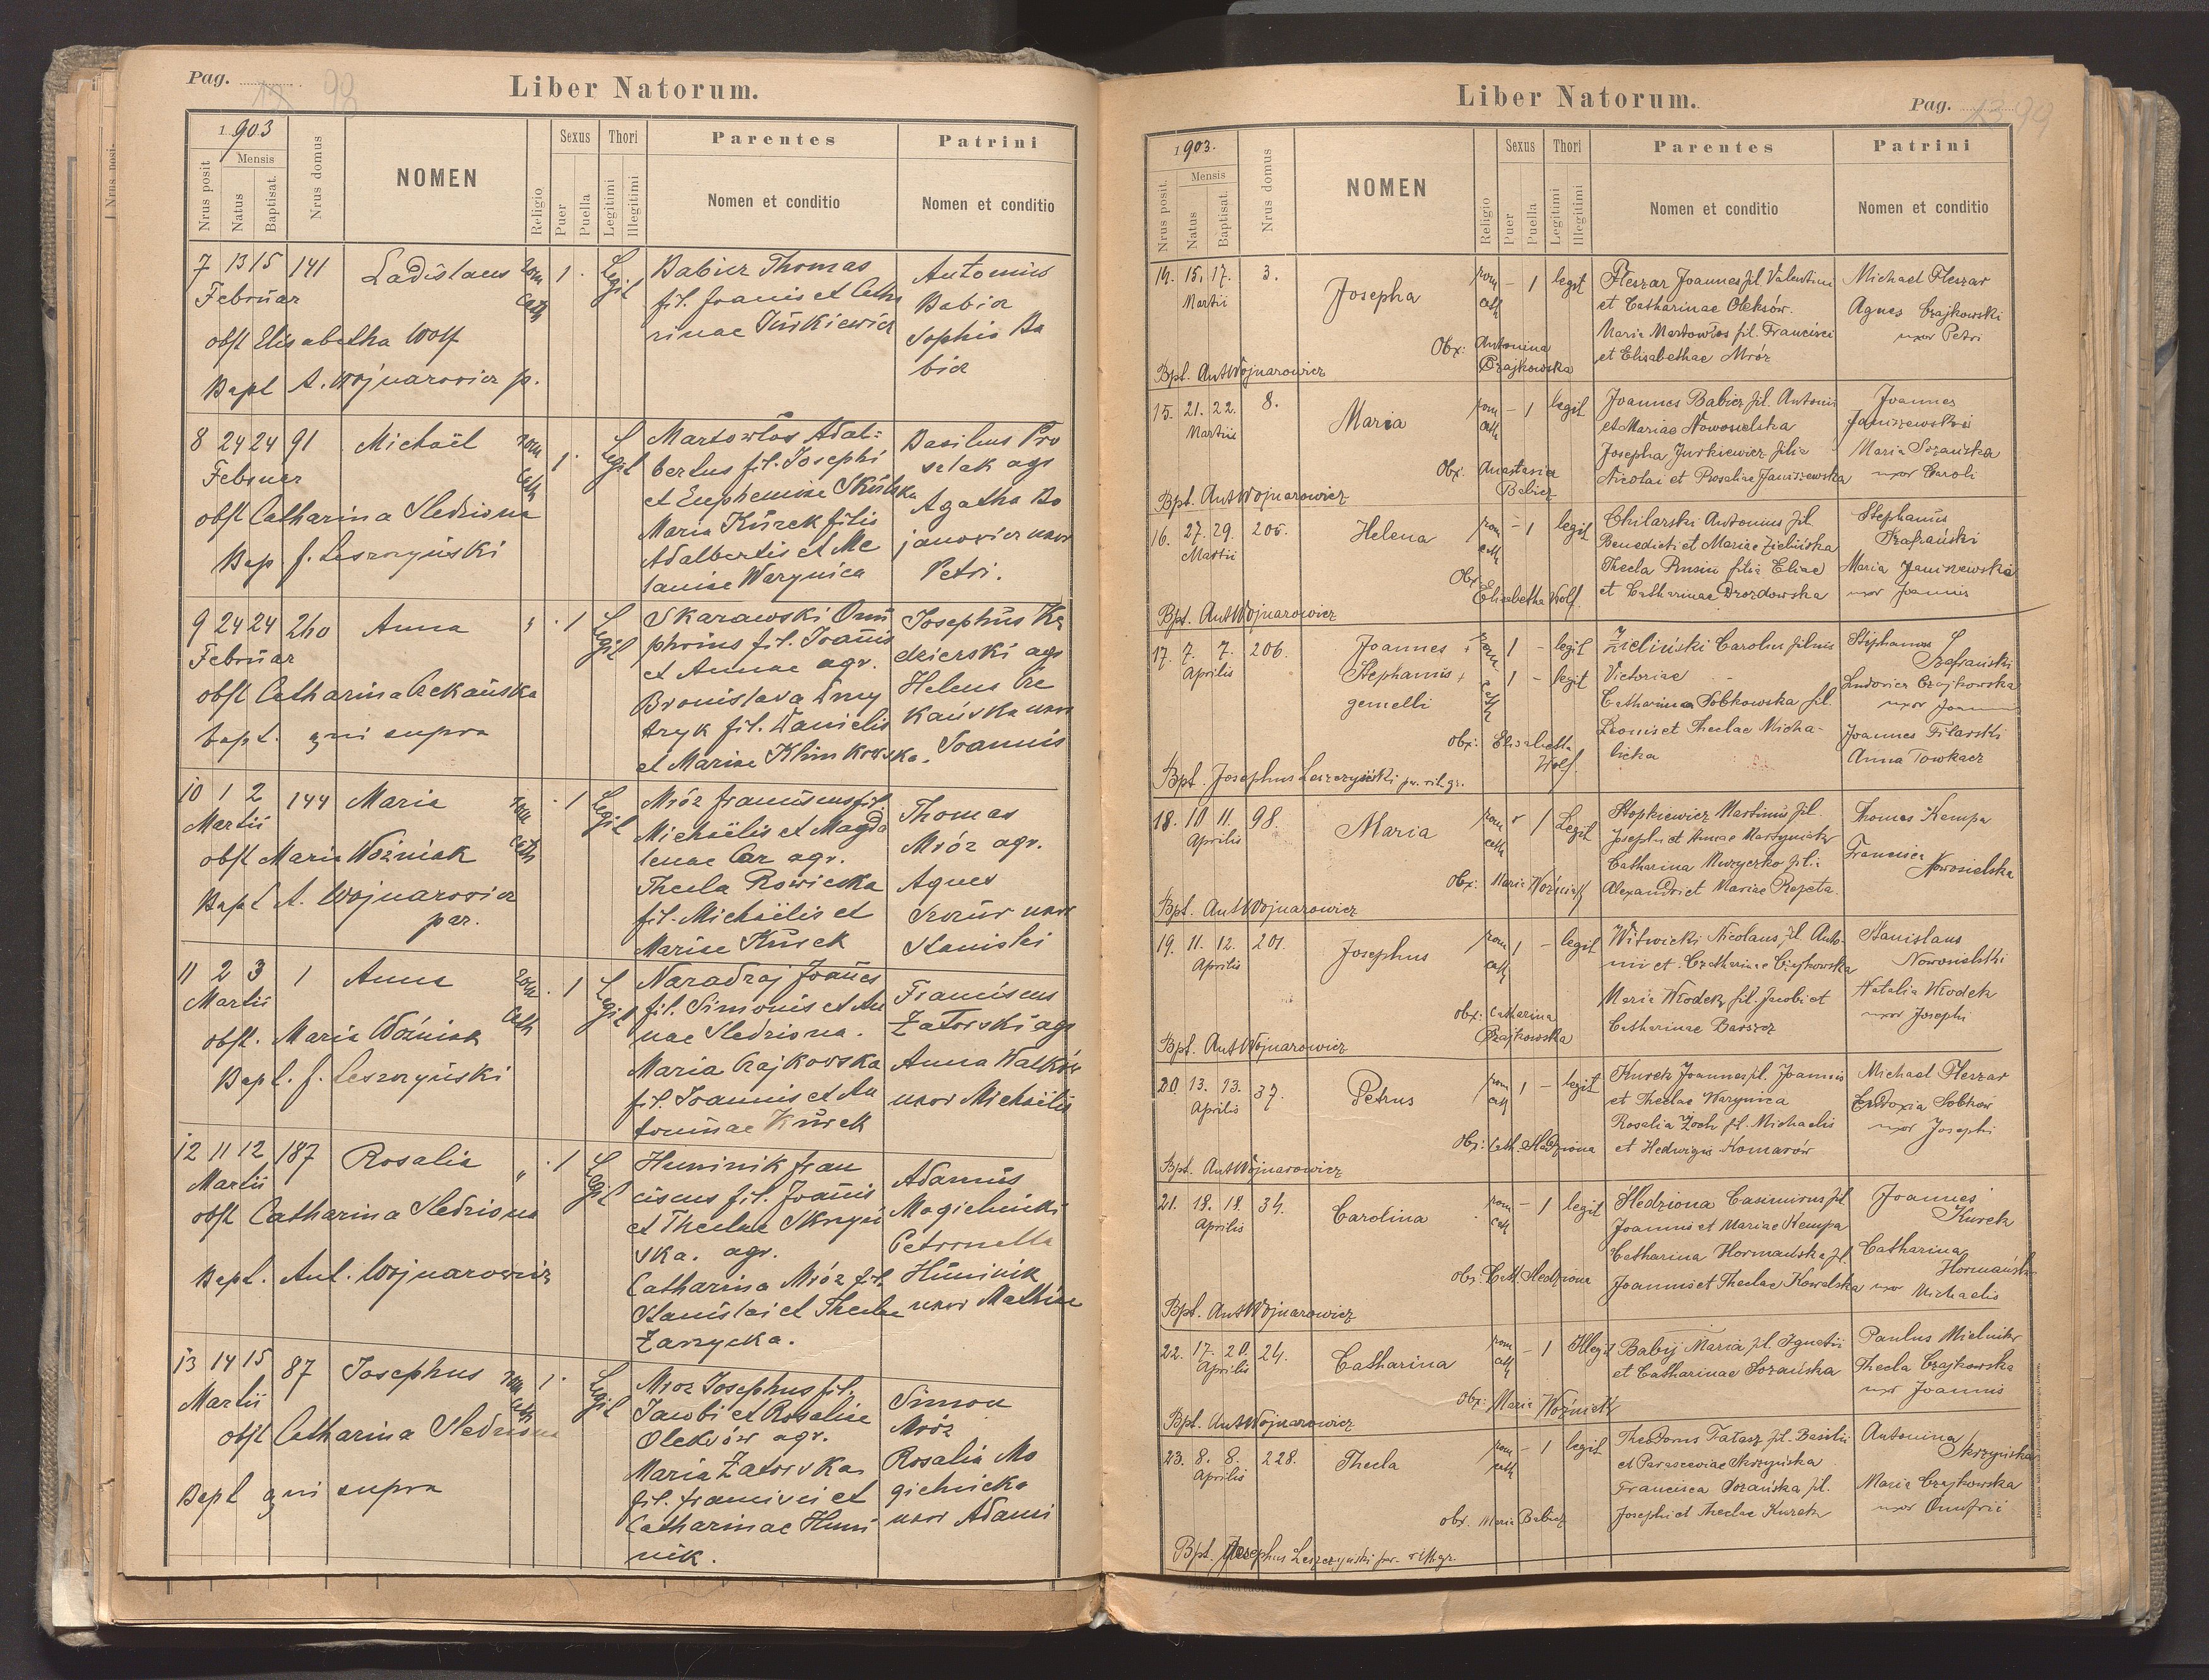 Pag. 98
Liber Natorum.
1903
Nrus posit
Mensis
Natus
Baptisat.
Nrus domus
NOMEN
Religio
Sexus
Puer
Puella
Thori
Legitimi
Illegitimi
Parentes
Nomen et conditio
Patrini
Nomen et conditio
7 13 15 141 Ladislaus rom 1 Legit Babicz Thomas Antonius
Februar cath fil. Joanis et Catha Babicz
obst Elisabetha Wolf rinae Jurkiewicz Sophia Ba
Bapt A. Wojnarowicz p. bicz
8 24 24 91 Michaël rom 1 Legit Martowłos Adal= Basilius Pro
Februar cath bertus fil. Josephi
obst Catharina Sledziona et Euphemiae Skulska Agatha Bo
Bap J. Leszczyński Maria Kurek filia janowicz uxor
Adalbertis et Me Petri.
laniae Warynica
9 24 24 260 Anna 1 Legit Skarawski Onu Josephus Kę
Februar phrius fil. Joanis dzierski agr
obst Catharina Czekańska et Annae agr. Helena Cze
bapt. qui supra Bronislava Dmy kańska uxor
tryk fil. Danielis Joannis
et Mariae Klimkowska.
10 1 2 144 Maria rom 1 Legit Mróz Franciscus fil. Thomas
Martii cath Michaëlis et Magda Mróz agr.
obst Maria Woźniak lenae agr. Agnes
Bapt A. Wojnarowicz Thecla Rowicka uxor
par. fil. Michaëlis et Stanislai
Mariae Kurek
11 2 3 1 Anna rom 1 Legit Naradzaj Joanes Franciscus
Martii cath fil. Simonis et An Zatorski agr
obst. Maria Woźniak nae Sledziona. Anna Walków
Bapt. J. Leszczyński Maria Czajkowska uxor Michaëlis
fil. Joannis et An
toninae Kurek
12 11 12 187 Rosalia " 1 Legit Huminik Fran Adamus
Martii ciscus fil. Joanis Mogielnicki
obst Catharina Sledziona et Theclae Skrzyń Petronella
Bapt. Ant. Wojnarowicz ska. agr. Huminik
Catharina Mróz fil. uxor Mathiae
Stanislai et Theclae
Zarzycka.
13 14 15 87 Josephus rom 1 Legit Mroz Josephus fil. Simon
Martii cath Jacobi et Rosaliae Mróz
obst Catharina Sledziona Oleksów agr. Rosalia Mo
Bapt qui supra Maria Zatorska gielnicka
fil. Francisci et uxor Adami
Catharinae Humi
nik.
Liber Natorum.
Pag. 99
1903.
Nrus posit.
Mensis
Natus
Baptisat.
Nrus domus
NOMEN
Religio
Sexus
Puer
Puella
Thori
Legitimi
Illegitimi
Parentes
Nomen et conditio
Patrini
Nomen et conditio
14. 15. 17. 3. Josepha rom – 1 legit Fleszar Joannes fil. Valentini Michael Fleszar
Martii cath et Catharinae Oleksów. Agnes Czajkowski
Obx: Antonina Maria Martowłos fil. Francisci uxor Petri
Czajkowska et Elisabethae Mróz
Bpt. Ant Wojnarowicz
15. 21. 22. 8. Maria rom – 1 legit Joannes Babicz fil. Antonii Joannes
Martii cath et Mariae Nowosielska Janiszewski
Obx. Anastasia Josepha Jurkiewicz filia Maria Sozańska
Babicz Nicolai et Rosaliae Janiszewska uxor Caroli
Bpt. Ant Wojnarowicz
16. 27. 29. 205. Helena rom – 1 legit Chilarski Antonius fil. Stephanus
Martii cath Benedicti et Mariae Zielińska Szafrański
Obx. Thecla Rusin filia Eliae Maria Janiszewska
Elisabetha Wolf. et Catharinae Drozdowska uxor Joannis
Bpt. Ant Wojnarowicz
17. 7. 7. 206. Joannes + rom 1 – legit Zieliński Carolus filius Stephanus
Aprilis Stephanus + cath 1 – legit Victoriae Szafrański
gemelli Catharina Sobkowska fil. Ludovica Czajkowska
obx: Elisabetha Leonis et Theclae Micha- uxor
Wolf. licka Joannes Filarski
Anna Towkacz
Bpt. Josephus Leszczyński par. rit. gr.
18. 10 11. 98. Maria rom 1 Legit Stopkiewicz Martinus fil. Thomas Kempa
Aprilis cath Josephi et Annae Martyniak Francisca
Obx: Maria Woźniak Catharina Muzyczko filia Nowosielska
Alexandri et Mariae Rzepeta.
Bpt. Ant Wojnarowicz
19. 11. 12. 201. Josephus rom 1 – legit Witwicki Nicolaus fil. Anto- Stanislaus
Aprilis cath nii et Catharinae Czajkowska Nowosielski
obx: Catharina Maria Włodek fil. Jacobi et Natalia Włodek
Czajkowska Catharinae Barszcz uxor Josephi
Bpt. Ant Wojnarowicz
20 13. 13. 37. Petrus rom 1 – legit Kurek Joannes fil. Joannis Michael Fleszar
Aprilis cath et Theclae Warynica Eudoxia Sobków
Obx: Cath. Sledziona Rosalia Zoch fil. Michaelis uxor Josephi
et Hedwigis Komarów
Bpt. Ant Wojnarowicz
21. 18. 18. 34. Carolina rom – 1 legit Sledziona Casimirus fil. Joannes
Aprilis cath Joannis et Mariae Kempa Kurek
obx: Cath. Sledziona Catharina Hormańska fil. Catharina
Joannis et Theclae Kowalska Hormańska
uxor Michaelis
Bpt. Ant Wojnarowicz
22. 17. 20. 24. Catharina rom – 1 Illegit Babij Maria fil. Ignatii Paulus Mielnik
Aprilis cath et Catharinae Sozańska Thecla Czajkowska
Obx: Maria Woźniak uxor Joannis
Bpt. Ant Wojnarowicz
23. 8. 8. 228. Thecla rom – 1 legit Theodorus Fałasz fil. Basilii Antonina
Aprilis cath et Parasceviae Skrzyńska Skrzyńska
obx. Maria Babicz Francisca Sozańska fil. Maria Czajkowska
Josephi et Theclae Kurek uxor Onufrii
Bpt. Josephus Leszczyński par. rit. gr.